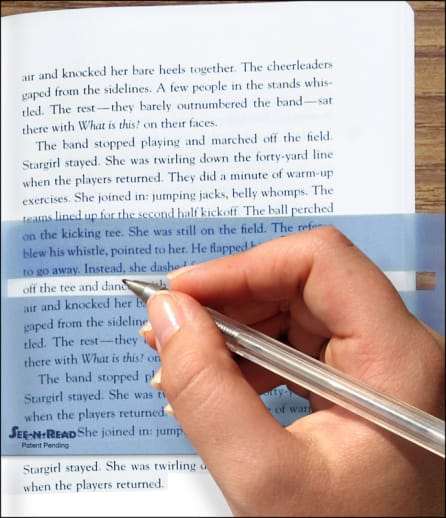 air and knocked her bare heels together. The cheerleaders
gaped from the sidelines. A few people in the stands whis-
tled. The rest—they barely outnumbered the band—sat
there with What is this? on their faces.
The band stopped playing and marched off the field.
Stargirl stayed. She was twirling down the forty-yard line
when the players returned. They did a minute of warm-up
exercises. She joined in: jumping jacks, belly whomps. The
teams lined up for the second half kickoff. The ball perched
on the kicking tee. She was still on the field. The referee
blew his whistle, pointed to her. He flapped
to go away. Instead, she dashed
off the tee and
air and knocked her
gaped from the
tled. The rest—they
there with What is this? on
The band stopped
Stargirl stayed. She was
when the players returned
of
SEE-N-READ She joined in:
Patent Pending
Stargirl stayed. She was twirling
when the players returned.